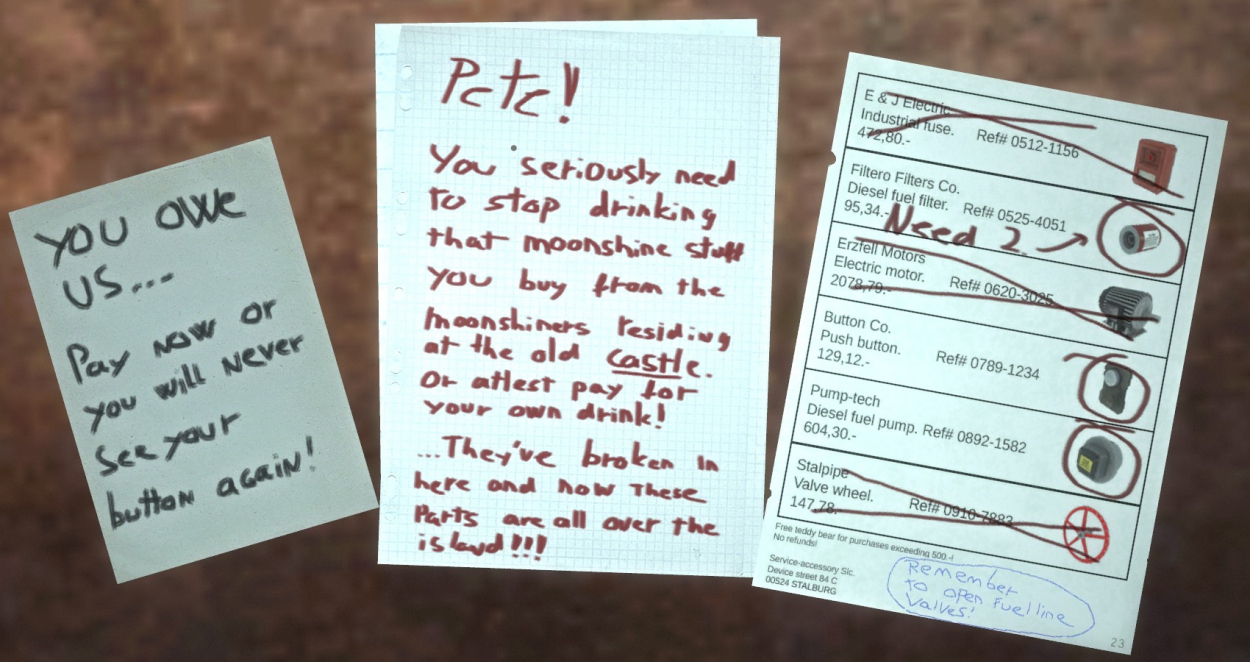 YOU OWE
US...
Pay NOW or
you will Never
See your
button again!
Pete!
You seriously need
to stop drinking
that moonshine stuff
you buy from the
moonshiners residing
at the old castle.
Or atlest pay for
your own drink!
...They've broken in
here and now these
Parts are all over the
island!!!
E & J Electric
Industrial fuse. Ref# 0512-1156
472,80.-
Filtero Filters Co.
Diesel fuel filter. Ref# 0525-4051
95,34.-
Need 2
Erzfell Motors
Electric motor. Ref# 0620-3025
2078,79.-
Button Co.
Push button. Ref# 0789-1234
129,12.-
Pump-tech
Diesel fuel pump. Ref# 0892-1582
604,30.-
Stalpipe
Valve wheel. Ref# 0910-7883
147,78.-
Free teddy bear for purchases exceeding 500.-!
No refunds!
Service-accessory Slc.
Device street 84 C
00524 STALBURG
Remember
to open Fuel line
Valves!
23